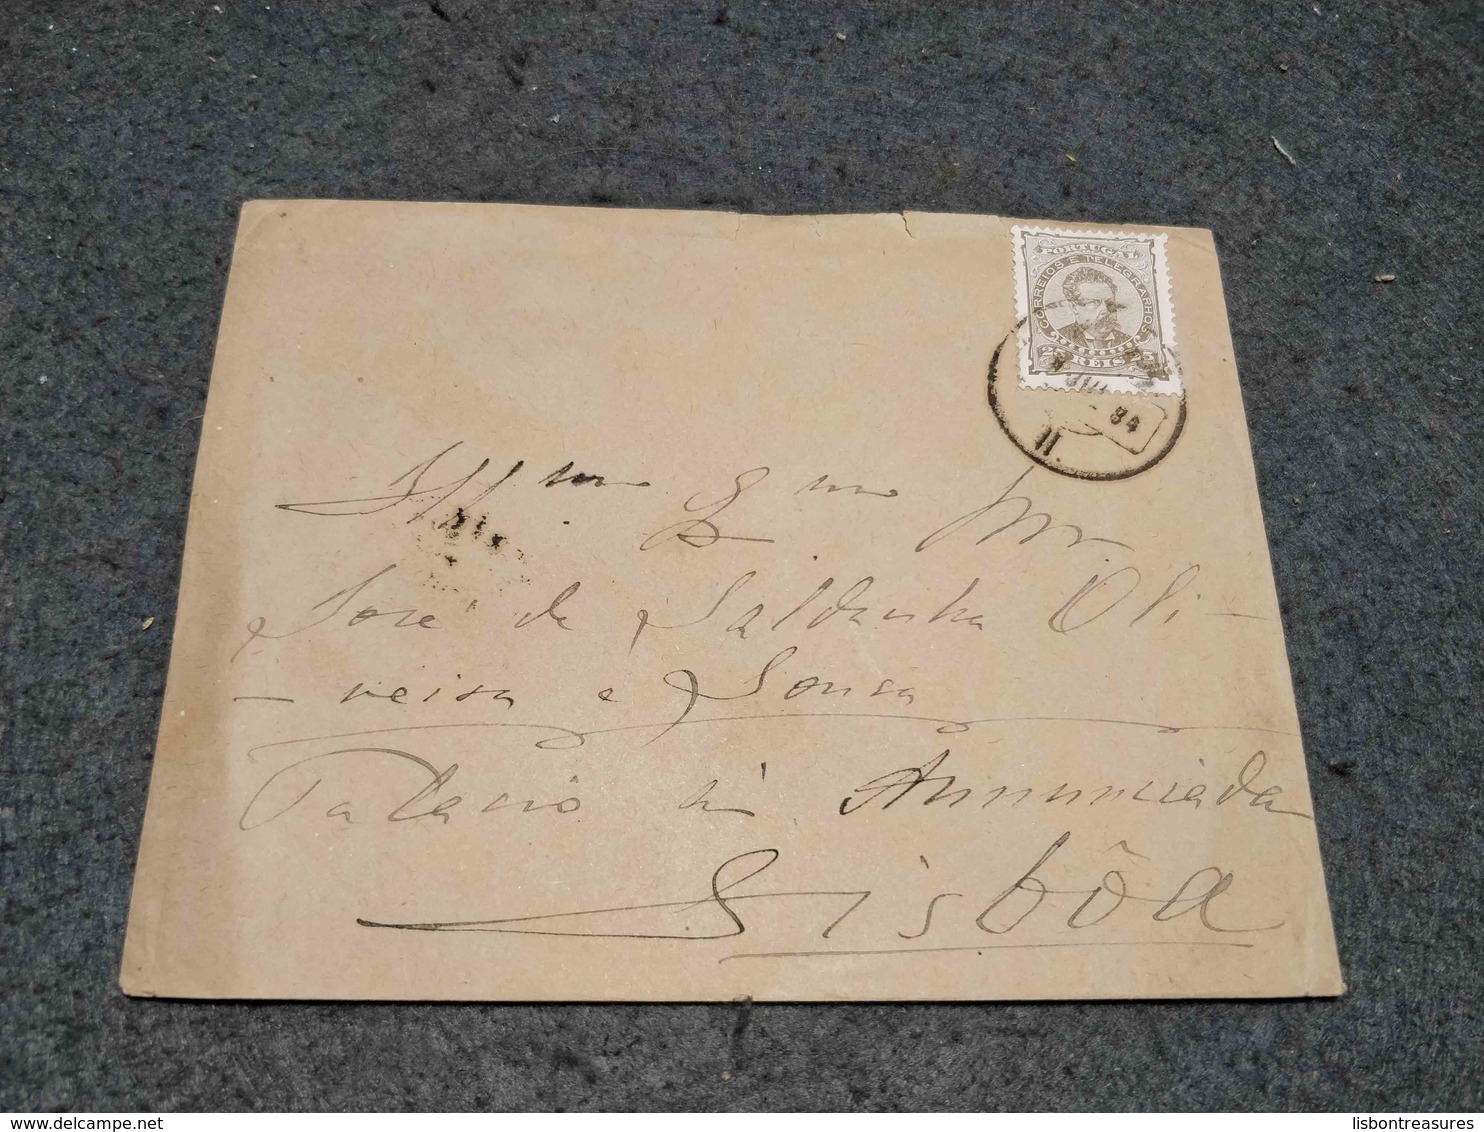 PORTUGAL
CORREIOS E TELEGRAPHOS
25 REIS 25
84
Ill.mo Ex.mo Snr
José de Saldanha Oli-
-veira e Sousa
Palacio á Annunciada
Lisbôa
lisbontreasures
delcampe.net